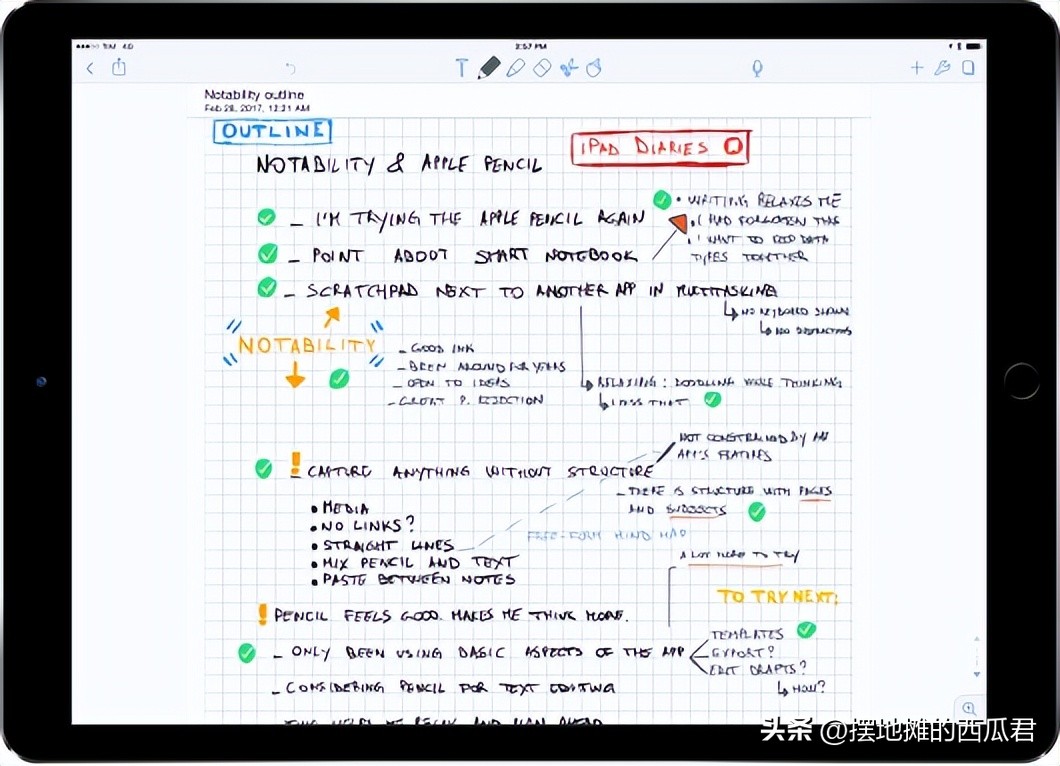 2:57 PM
Notability outline
Feb 28, 2017, 12:21 AM
OUTLINE
iPAD DIARIES
NOTABILITY & APPLE PENCIL
- I'M TRYING THE APPLE PENCIL AGAIN
• WRITING RELAXES ME
• I HAD FORGOTTEN THAT
• I WANT TO
TYPES TOGETHER
- POINT ABOUT SMART NOTEBOOK
- SCRATCHPAD NEXT TO ANOTHER APP IN MULTITASKING
NO KEYBOARD SHOWN
NO DISTRACTIONS
NOTABILITY
- GOOD INK
- BEEN AROUND FOR YEARS
- OPEN TO IDEAS
- GREAT P. REJECTION
RELAXING: DOODLING WHILE THINKING
I MISS THAT
NOT CONSTRAINED BY AN
APP'S FEATURES
! CAPTURE ANYTHING WITHOUT STRUCTURE
- THERE IS STRUCTURE WITH PAGES
AND SUBJECTS
• MEDIA
• NO LINKS?
• STRAIGHT LINES
• MIX PENCIL AND TEXT
• PASTE BETWEEN NOTES
FREE-FORM MIND MAP
A LOT MORE TO TRY
TO TRY NEXT:
! PENCIL FEELS GOOD. MAKES ME THINK MORE.
- ONLY BEEN USING BASIC ASPECTS OF THE APP
TEMPLATES
EXPORT?
EDIT DRAFTS?
HOW?
- CONSIDERING PENCIL FOR TEXT EDITING
AND PLAN AHEAD
头条 @摆地摊的西瓜君